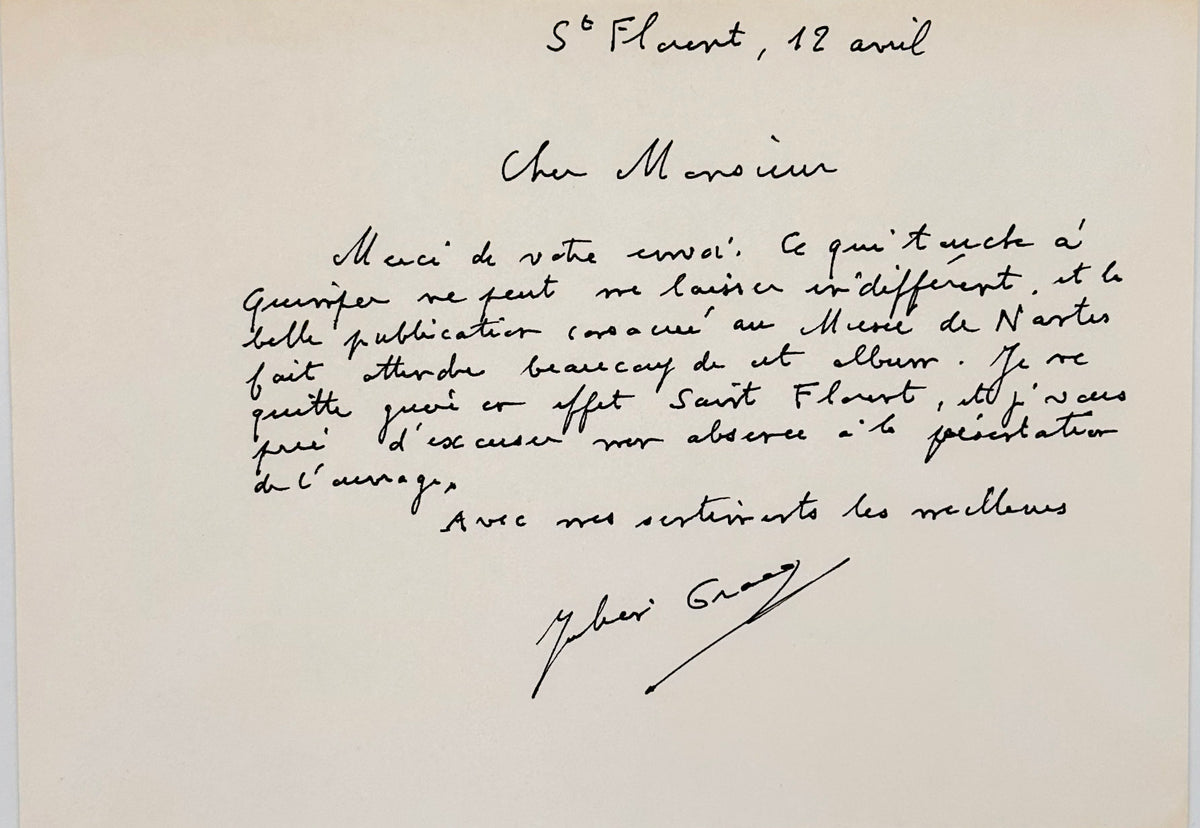 St Florent, 12 avril
Cher Monsieur
Merci de votre envoi. Ce qui touche à
Quimper ne peut me laisser indifférent, et la
belle publication consacrée au Musée de Nantes
fait attendre beaucoup de cet album. Je ne
quitte guère en effet Saint Florent, et je vous
prie d'excuser mon absence à la présentation
de l'ouvrage,
Avec mes sentiments les meilleurs
Julien Gracq